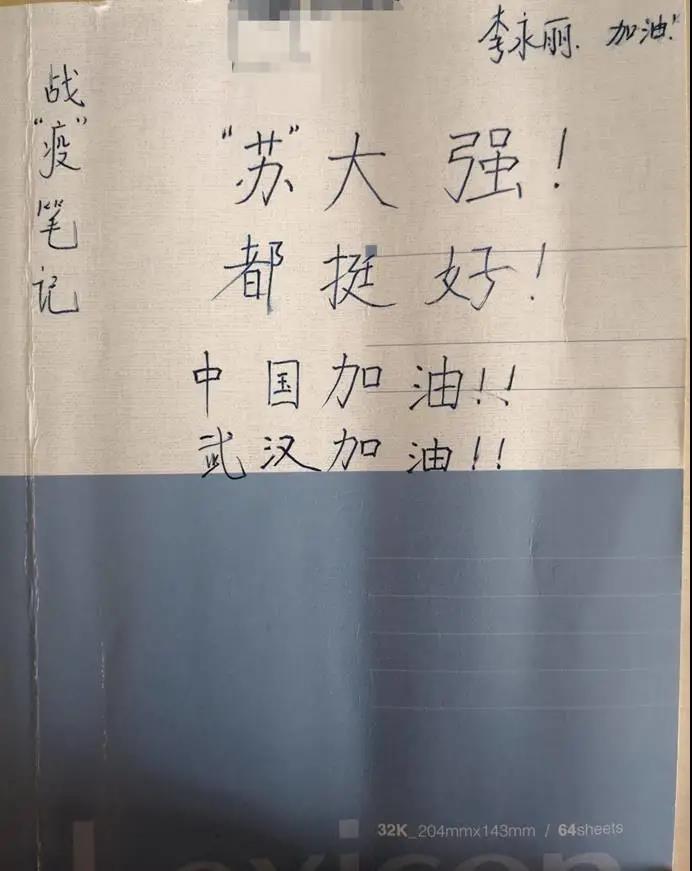 李永丽. 加油!
战"疫"笔记
"苏"大强!
都挺好!
中国加油!!
武汉加油!!
32K_204mmx143mm / 64sheets
Lexicon